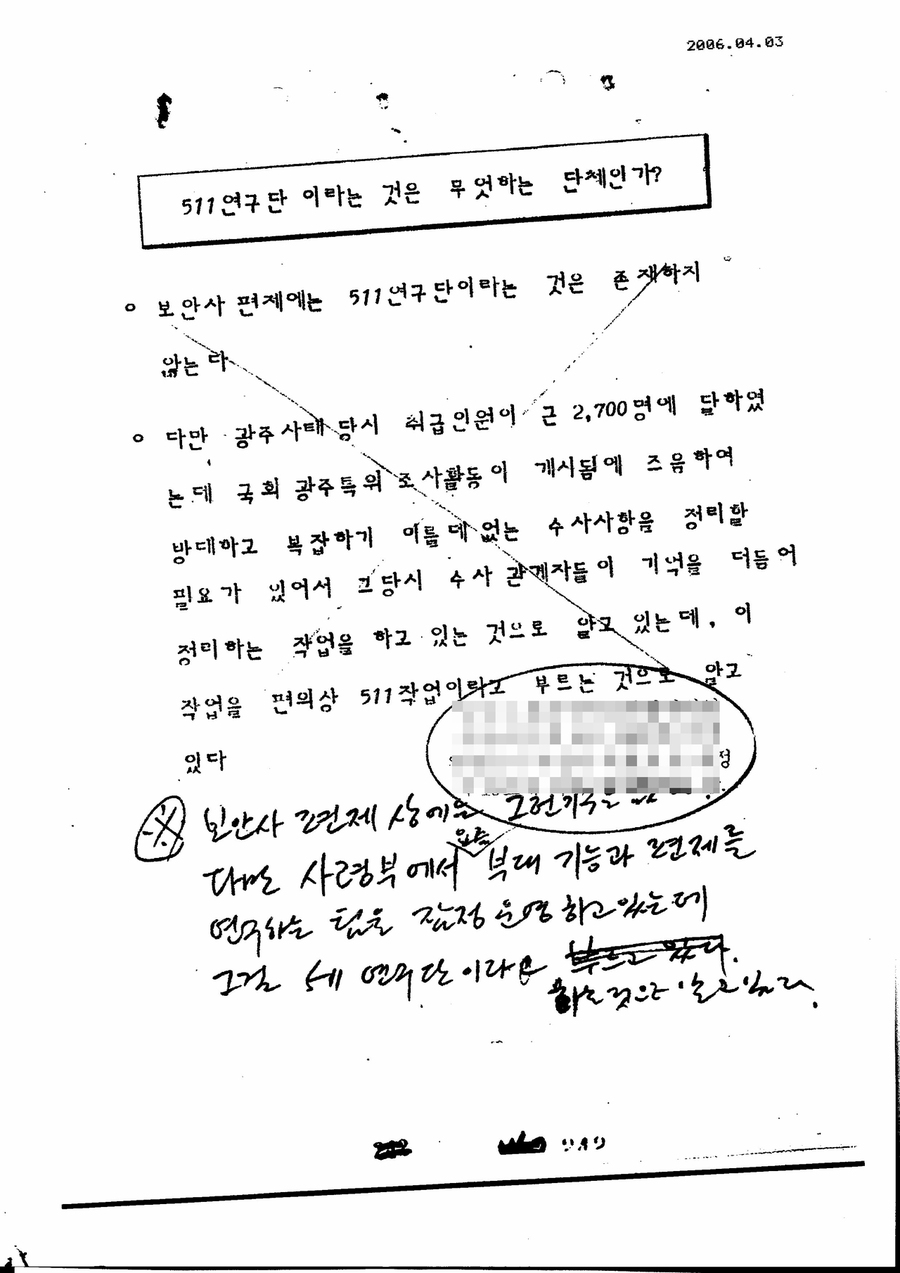 2006.04.03
511연구단 이라는 것은 무엇하는 단체인가?
o 보안사 편제에는 511연구단이라는 것은 존재하지
않는다
o 다만 광주사태 당시 취급인원이 근 2,700명에 달하였
는데 국회 광주특위 조사활동이 개시됨에 즈음하여
방대하고 복잡하기 이를데 없는 수사사항을 정리할
필요가 있어서 그당시 수사 관계자들이 기억을 더듬어
정리하는 작업을 하고 있는 것으로 알고 있는데, 이
작업을 편의상 511작업이라고 부르는 것으로 알고
있다
정
※ 보안사 편제 상에는 그런기구는
요즘
다만 사령부에서 부대 기능과 편제를
연구하는 팀을 잠정 운영하고있는데
그걸 연구단이라고 부르고 있다.
하는것으로 알고있다.